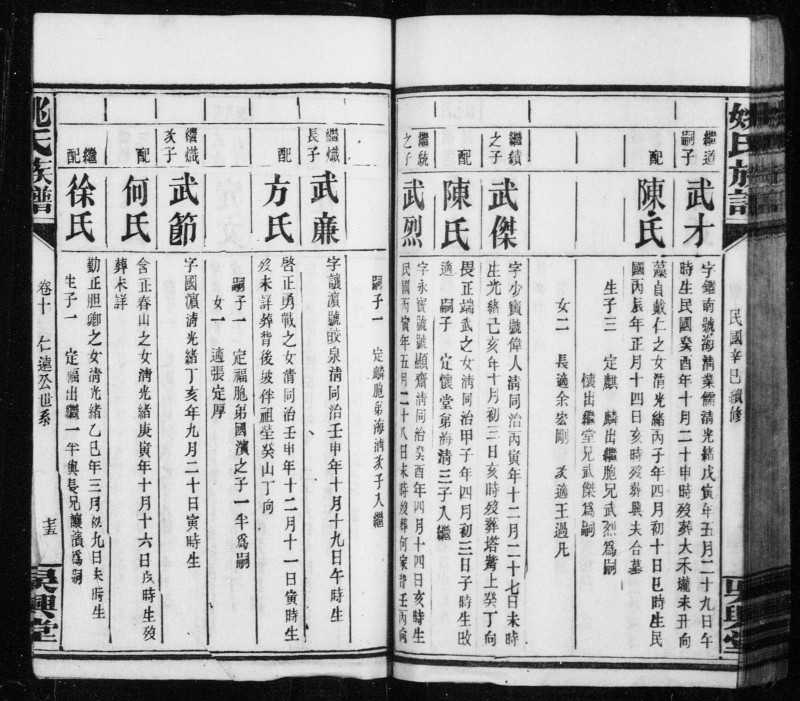 姚氏族譜
民國辛巳續修
吳興堂
繼道
嗣子
武才
字鑑南號海清業儒清光緒戊寅年五月二十九日午
時生民國癸酉年十月二十申時歿葬大禾壠未丑向
配
陳氏
藻貞戴仁之女清光緒丙子年四月初十日巳時生民
國丙辰年正月十四日亥時歿葬與夫合墓
生子三 定麒 麟出繼胞兄武烈爲嗣
懷出繼堂兄武傑爲嗣
女二 長適余宏剛 次適王過凡
繼績
之子
武傑
字少寶號偉人清同治丙寅年十二月二十七日未時
生光緒己亥年十月初三日亥時歿葬塔觜上癸丁向
配
陳氏
畏正端武之女清同治甲子年四月初三日子時生改
適 嗣子一 定懷堂弟海清三子入繼
繼統
之子
武烈
字永賓號號顯齋清同治癸酉年四月十四日亥時生
民國丙寅年五月二十八日未時歿葬何家背壬丙向
嗣子一 定麟胞弟海清次子入繼
繼熾
長子
武廉
字讓濱號畋泉清同治壬申年十月十九日午時生
配
方氏
啓正勇戰之女清同治壬申年十二月十一日寅時生
歿未詳葬背後坡伴祖塋癸山丁向
嗣子一 定福胞弟國濱之子一半爲嗣
女一 適張定厚
繼熾
次子
武節
字國濱清光緒丁亥年九月二十日寅時生
配
何氏
含正春山之女清光緒庚寅年十月十六日戌時生歿
葬未詳
繼
配
徐氏
勤正胆卿之女清光緒乙巳年三月初九日未時生
生子一 定福出繼一半與長兄讓濱爲嗣
姚氏族譜
卷十 仁達公世系
吳興堂